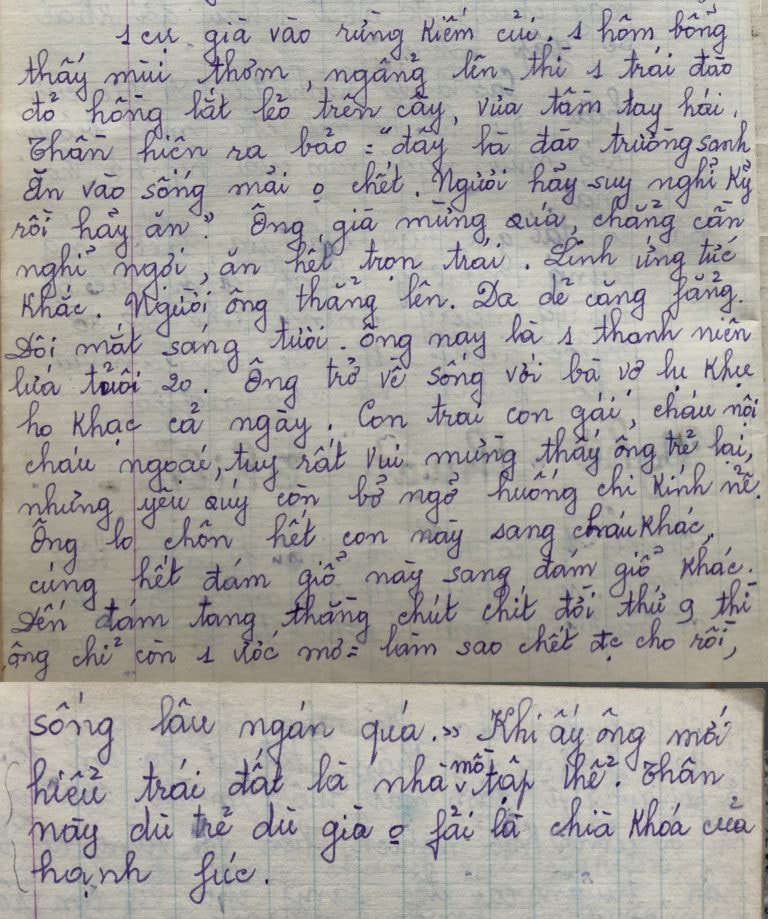 1 cụ già vào rừng kiếm củi. 1 hôm bỗng
thấy mùi thơm, ngẩng lên thì 1 trái đào
đỏ hồng lắt lẻo trên cây, vừa tầm tay hái.
Thần hiện ra bảo = "đây là đào trường sanh
ăn vào sống mãi o chết. Người hảy suy nghỉ kỹ
rồi hẩy ăn". Ông già mừng quá, chẳng cần
nghỉ ngơi, ăn hết trơn trái. Linh ứng tức
khắc. Người ông thẳng lên. Da dẻ căng fẳng.
Đôi mắt sáng tươi. Ông nay là 1 thanh niên
lứa tuổi 20. Ông trở về sống với bà vợ lụ khụ
ho khạc cả ngày. Con trai con gái, cháu nội
cháu ngoại, tuy rất vui mừng thấy ông trẻ lại,
nhưng yêu quý còn bở ngở huống chi kính nể.
Ông lo chôn hết con này sang cháu khác,
cúng hết đám giổ này sang đám giổ khác.
Đến đám tang thằng chút chít đời thứ 9 thì
ông chỉ còn 1 ước mơ = làm sao chết đc cho rồi,
sống lâu ngán quá.» Khi ấy ông mới
hiểu trái đất là nhà mồ tập thể. Thân
này dù trẻ dù già o fải là chìa khóa của
hạnh fúc.